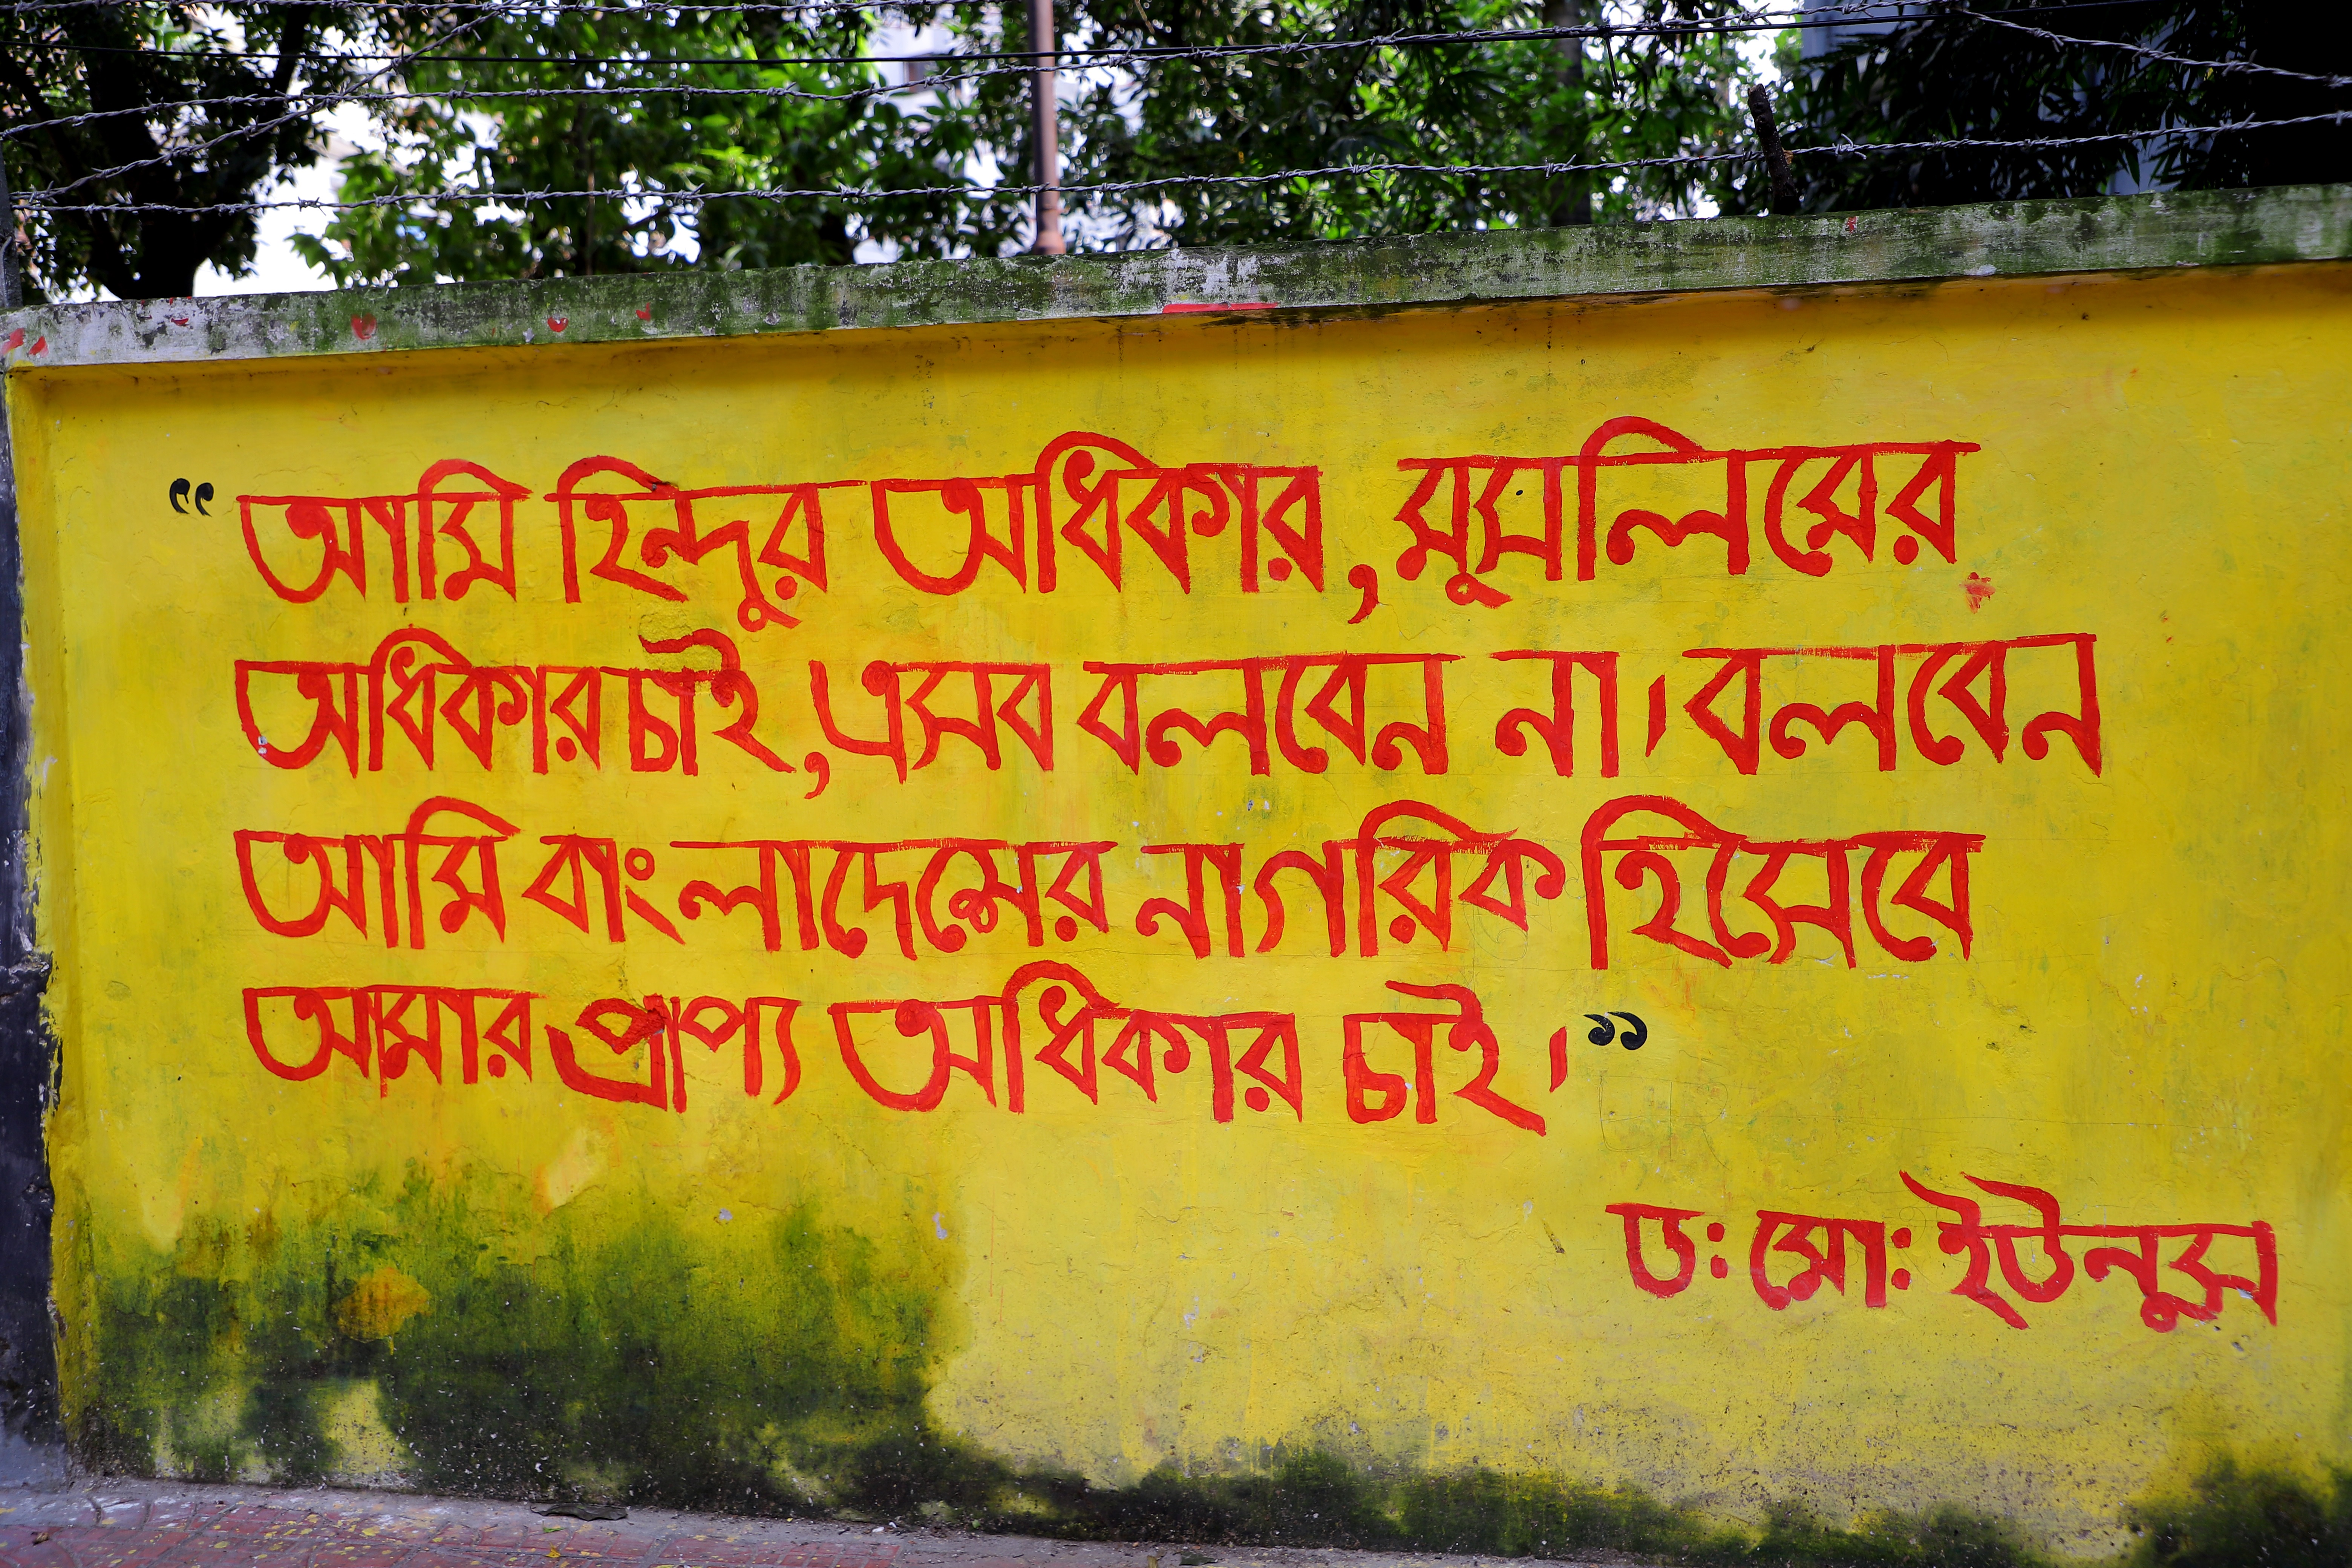 “আমি হিন্দুর অধিকার, মুসলিমের
অধিকার চাই, এসব বলবেন না। বলবেন
আমি বাংলাদেশের নাগরিক হিসেবে
আমার প্রাপ্য অধিকার চাই।”
ড: মো: ইউনুস